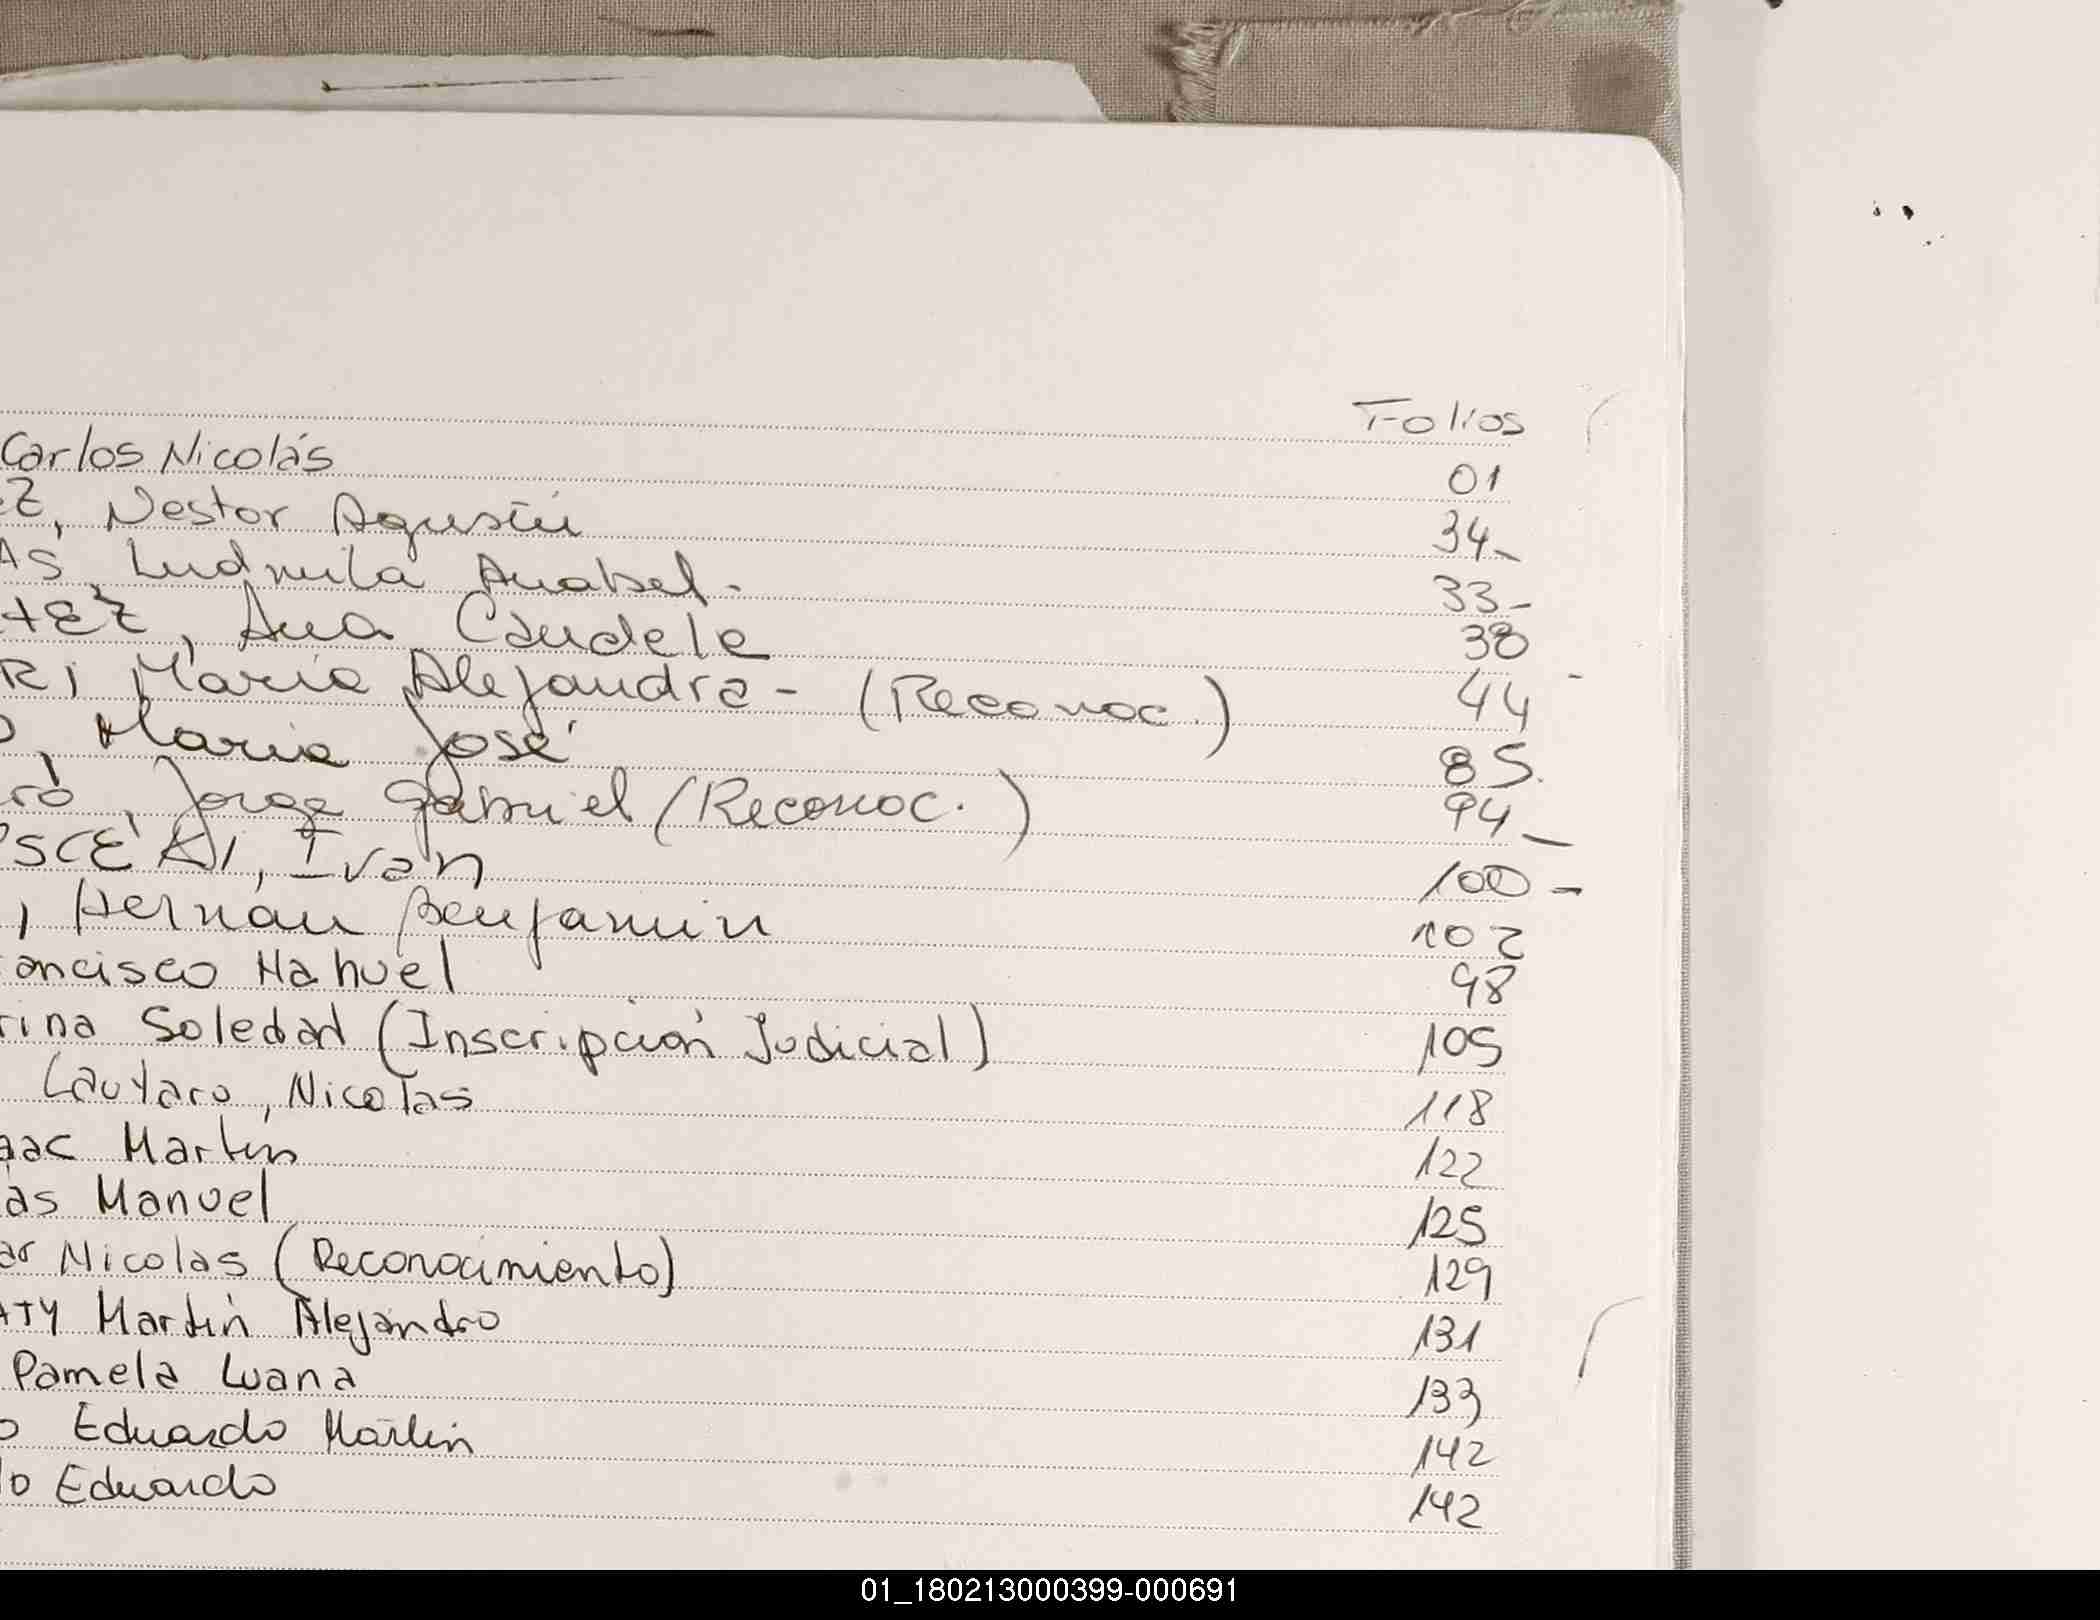 Folios
Carlos Nicolás 01
EZ, Nestor Agustín 34-
AS, Ludmila Anabel. 33-
TEZ, Ana Candela 38
RI, María Alejandra - (Reconoc.) 44
o, María José 85.
ró, Jorge Gabriel (Reconoc.) 94-
Ivan 100-
, Hernan Benjamin 102
ancisco Nahuel 98
rina Soledad (Inscripción Judicial) 105
Lautaro, Nicolas 118
aac Martín 122
as Manuel 125
ar Nicolas (Reconocimiento) 129
ATY Martín Alejandro 131
Pamela Luana 133
o Eduardo Martín 142
do Eduardo 142
01_180213000399-000691